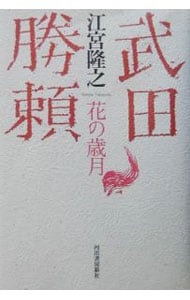 武田
勝頼
江宮隆之
花の歳月
河出書房新社